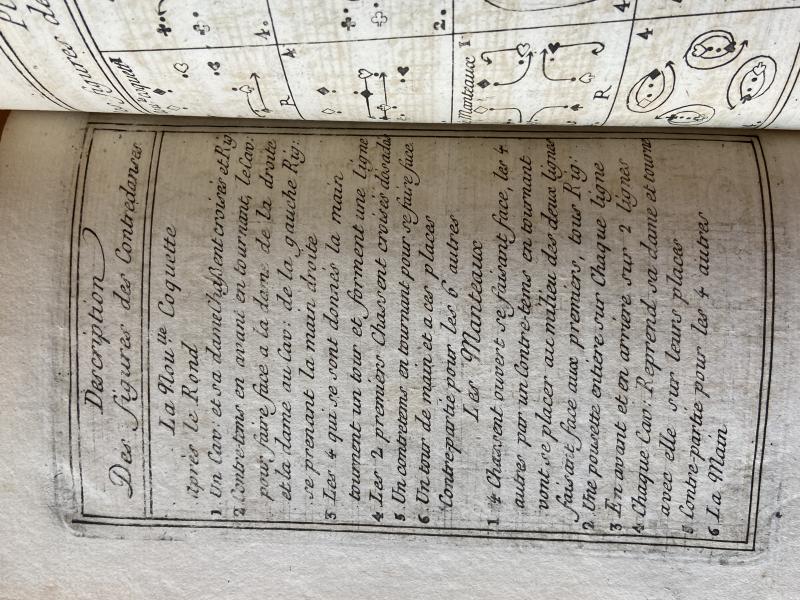 Description
Des figures des Contredanses
La Nou.lle Coquette
après le Rond
1 Un Cav: et sa dame Chassent croisés et Rig
2 Contretems en avant en tournant, le Cav:
pour faire face a la dame de la droite
et la dame au Cav: de la gauche Rig:
se prenant la main droite
3 Les 4 qui se sont donnés la main
tournent un tour et forment une ligne
4 Les 2 premiers Chassent croisés dos a dos
5 Un contretems en tournant pour se faire face
6 Un tour de main et a ces places
Contrepartie pour les 6 autres
Les Manteaux
1 4 Chassent ouvert se faisant face, les 4
autres par un Contretems en tournant
vont se placer au milieu des deux lignes
faisant face aux premiers, tous Rig:
2 Une pousette entiere sur Chaque ligne
3 En avant et en arriere sur 2 lignes
4 Chaque Cav: Reprend sa dame et tourne
avec elle sur leurs places
5 Contre-partie pour les 4 autres
6 La Main
figures de
4.
4
R
2.
Manteaux 1
R
4
4